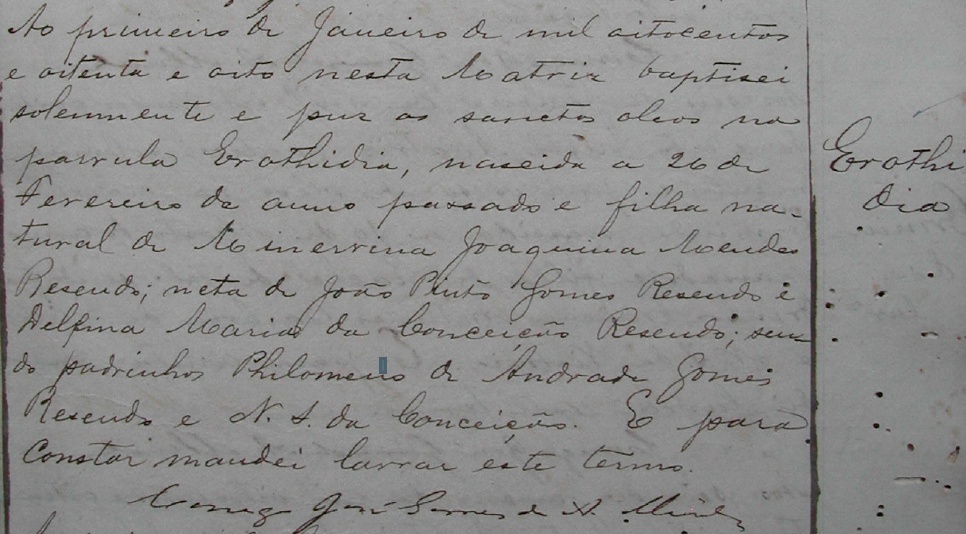 Ao primeiro de Janeiro de mil oitocentos
e oitenta e oito nesta Matriz baptisei
solemnente e puz os sanctos oleos na
parvula Erothidia, nascida a 26 de
Fevereiro do anno passado e filha na-
tural de Minervina Joaquina Mendes
Resendo; neta de João Pinto Gomes Resendo e
Delfina Maria da Conceição Resendo; sen-
do padrinhos Philomeno de Andrade Gomes
Resendo e N. S. da Conceição. E para
Constar mandei lavrar este termo.
Conego José Gomes de A.
Erothi
dia